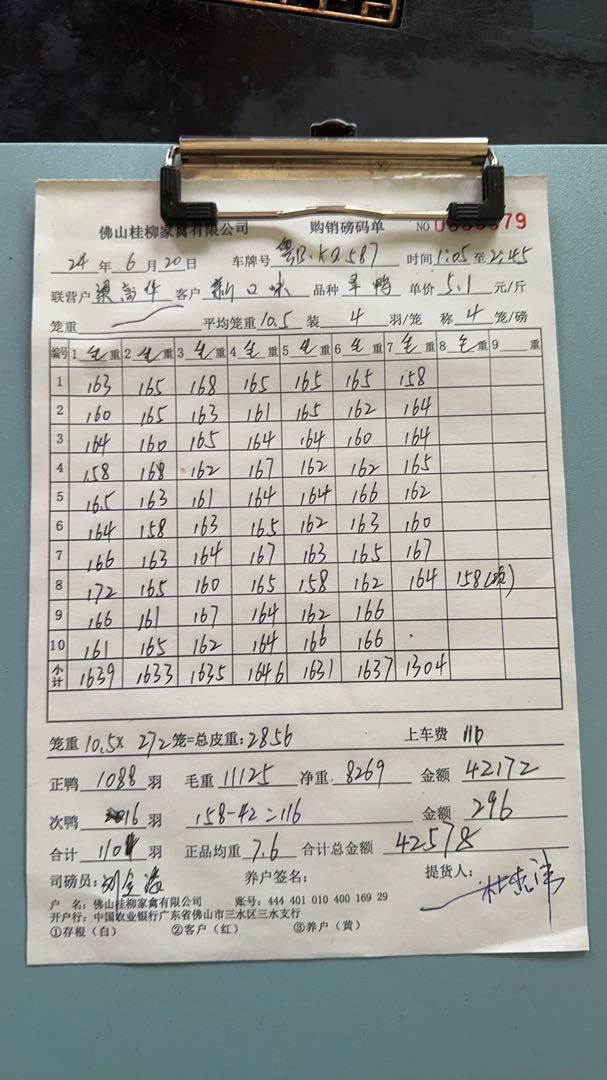 佛山桂柳家禽有限公司 购销磅码单 NO
24 年 6 月 20 日 车牌号 粤B·KQ587 时间 1:05 至 2:45
联营户 梁高华 客户 新口味 品种 单价 5.1 元/斤
笼重 平均笼重 10.5 装 4 羽/笼 称 4 笼/磅
编号 1 毛重 2 毛重 3 毛重 4 毛重 5 毛重 6 毛重 7 毛重 8 毛重 9 重
1 163 165 168 165 165 165 158
2 160 165 163 161 165 162 164
3 164 160 165 164 164 160 164
4 158 168 162 167 162 162 165
5 165 163 161 164 164 166 162
6 164 158 163 165 162 163 160
7 166 163 164 167 163 165 167
8 172 165 160 165 158 162 164 158
9 166 161 167 164 162 166
10 161 165 162 164 166 166
小计 1639 1633 1635 1646 1631 1637 1304
笼重 10.5× 272 笼=总皮重: 2856 上车费 116
正鸭 1088 羽 毛重 11125 净重 8269 金额 42172
次鸭 16 羽 158-42=116 金额 296
合计 1104 羽 正品均重 7.6 合计总金额 42578
司磅员: 养户签名: 提货人:
户 名: 佛山桂柳家禽有限公司 账号: 444 401 010 400 169 29
开户行: 中国农业银行广东省佛山市三水区三水支行
①存根（白） ②客户（红） ③养户（黄）